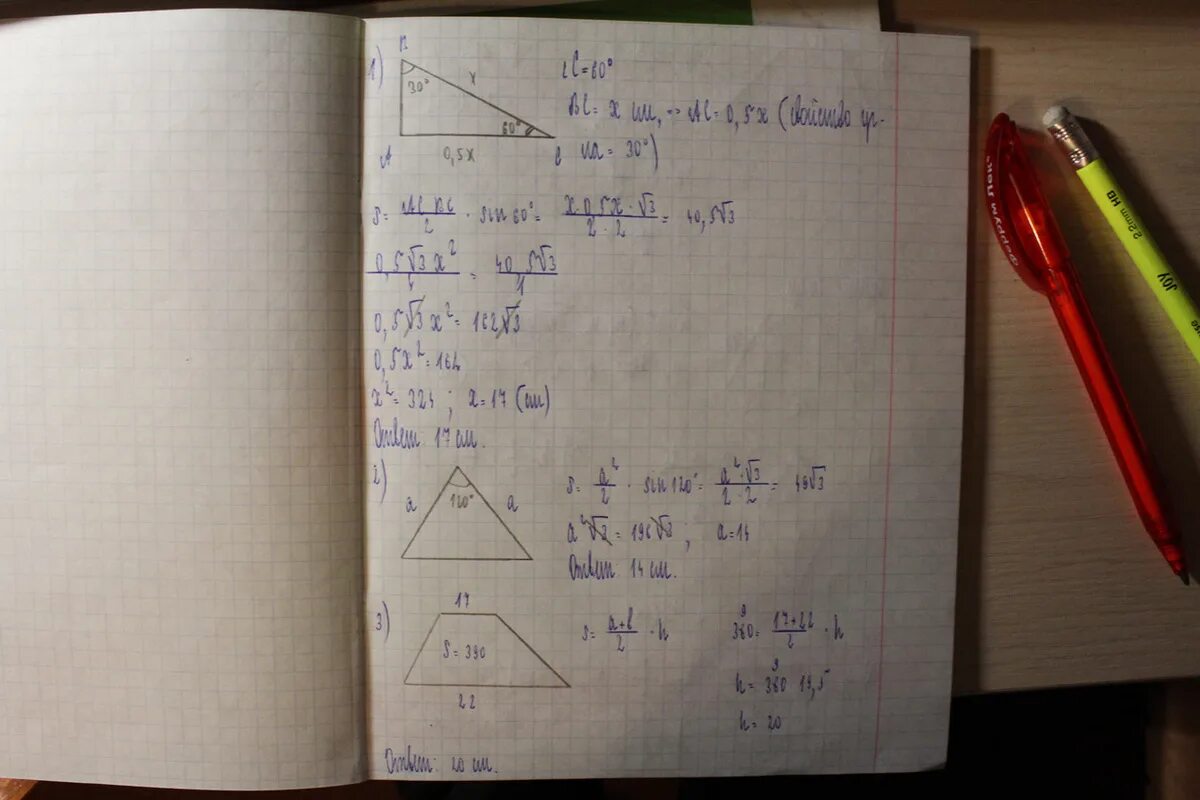 1)
B
30°
x
60°
A
0,5x
C
∠C=60°
BC= x см, => AC= 0,5x (свойство пр-
уг = 30°)
S= AC·BC/2 · sin 60°= x·0,5x·√3/2·2 = 40,5√3
0,5√3x²/4 = 40,5√3/1
0,5√3x²=162√3
0,5x²=162
x²= 324 ; x=17 (см)
Ответ: 17 см.
2)
120°
a
a
S= a²/2 · sin 120°= a²·√3/2·2 = 49√3
a²√3 = 196√3 ; a=14
Ответ: 14 см.
3)
17
S=390
22
S= a+b/2 · h
390= 17+22/2 · h
h= 390 19,5
h=20
Ответ: 20 см.
2.2mm HB
JOY